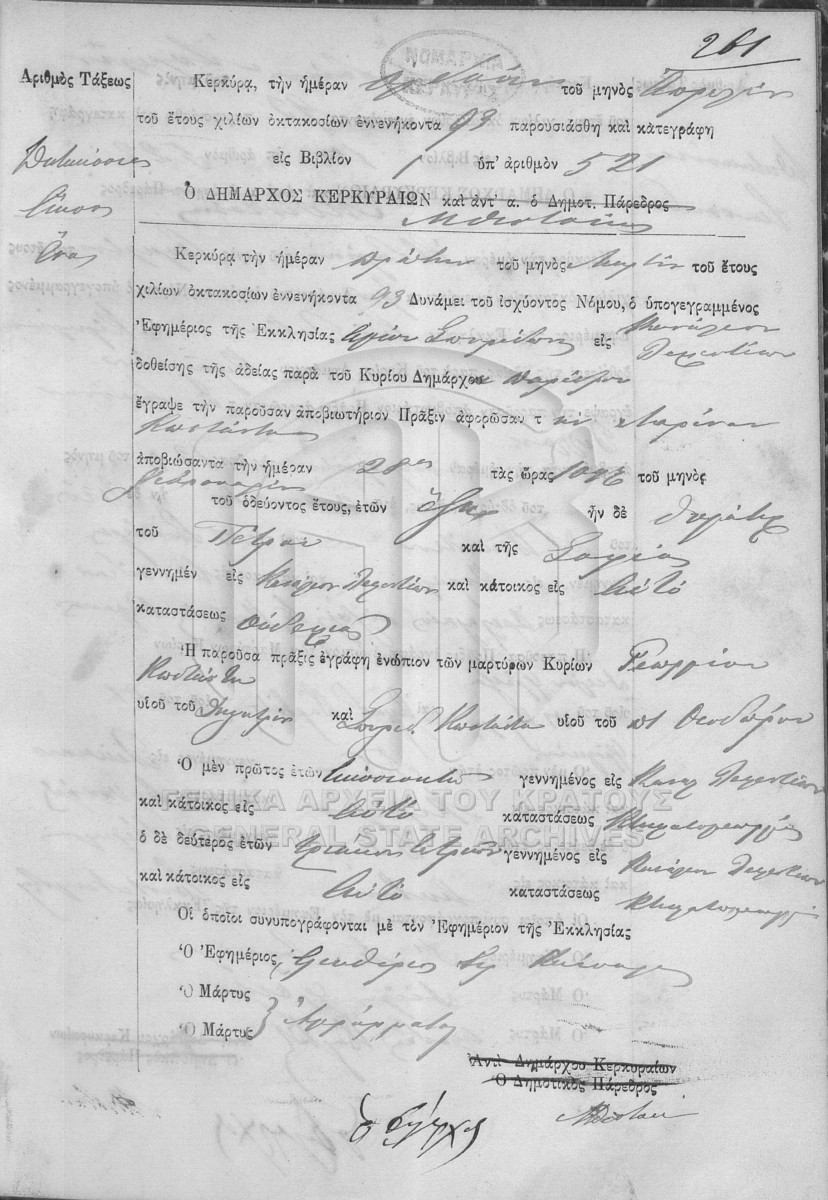 261
ΝΟΜΑΡΧΙΑ
Ἀριθμὸς Τάξεως
Κερκύρα, τὴν ἡμέραν ὀγδόην τοῦ μηνὸς Ἀπριλίου
τοῦ ἔτους χιλίων ὀκτακοσίων ἐννενήκοντα 93 παρουσιάσθη καὶ κατεγράφη
Διακόσια εἰς Βιβλίον 1 ὑπ' ἀριθμὸν 521
εἴκοσι
ἕνα
Ὁ ΔΗΜΑΡΧΟΣ ΚΕΡΚΥΡΑΙΩΝ καὶ ἀντ' α. ὁ Δημοτ. Πάρεδρος
Κερκύρᾳ τὴν ἡμέραν πρώτην τοῦ μηνὸς Μαρτίου τοῦ ἔτους
χιλίων ὀκτακοσίων ἐννενήκοντα 93 Δυνάμει τοῦ ἰσχύοντος Νόμου, ὁ ὑπογεγραμμένος
Ἐφημέριος τῆς Ἐκκλησίας Ἁγίου Σπυρίδωνος εἰς
δοθείσης τῆς ἀδείας παρὰ τοῦ Κυρίου Δημάρχου παρέδρου
ἔγραψε τὴν παροῦσαν ἀποβιωτήριον Πρᾶξιν ἀφορῶσαν τ ὴν Μαρίναν
Κωστάντα
ἀποβιώσαντα τὴν ἡμέραν 28ην τὰς ὥρας 10 π.μ. τοῦ μηνὸς
Φεβρουαρίου
τοῦ ὁδεύοντος ἔτους, ἐτῶν ἕξ ἦν δὲ θυγάτηρ
τοῦ Πέτρου καὶ τῆς Σοφίας
γεννημέν εἰς καὶ κάτοικος εἰς Αὐτό
καταστάσεως οὐδεμιᾶς
Ἡ παροῦσα πρᾶξις ἐγράφη ἐνώπιον τῶν μαρτύρων Κυρίων Γεωργίου
Κωστάντα
υἱοῦ τοῦ Δημητρίου καὶ Σπυρίδ. Κωστάντα υἱοῦ τοῦ πτ Θεοδώρου
Ὁ μὲν πρῶτος ἐτῶν εἰκοσιοκτώ γεννημένος εἰς
καὶ κάτοικος εἰς Αὐτό καταστάσεως Κτηματογεωργός
ὁ δὲ δεύτερος ἐτῶν τριάκοντα τριῶν γεννημένος εἰς
καὶ κάτοικος εἰς Αὐτό καταστάσεως Κτηματογεωργός
Οἱ ὁποῖοι συνυπογράφονται μὲ τὸν Ἐφημέριον τῆς Ἐκκλησίας
Ὁ Ἐφημέριος Ἐλευθέριος
Ὁ Μάρτυς
Ὁ Μάρτυς Ἀγράμματοι
Ἀντὶ Δημάρχου Κερκυραίων
Ὁ Δημοτικὸς Πάρεδρος
ΓΕΝΙΚΑ ΑΡΧΕΙΑ ΤΟΥ ΚΡΑΤΟΥΣ
GENERAL STATE ARCHIVES